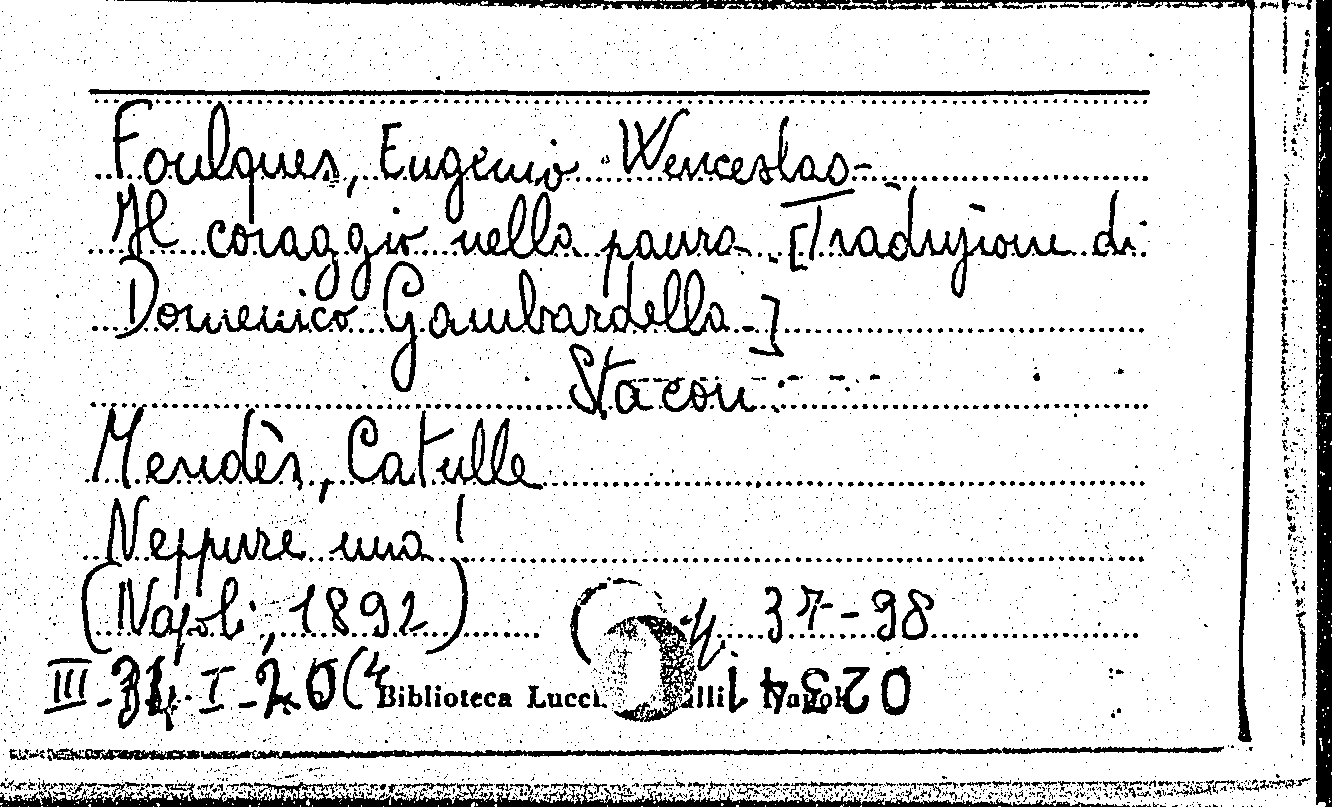 Foulques, Eugenio Wenceslao-
Il coraggio nella paura. [Traduzione di
Domenico Gambardella-]
Sta con:
Mendès, Catulle
Neppure una!
(Napoli, 1892) p. 37-98
III - I - 20(4
Biblioteca Napoli